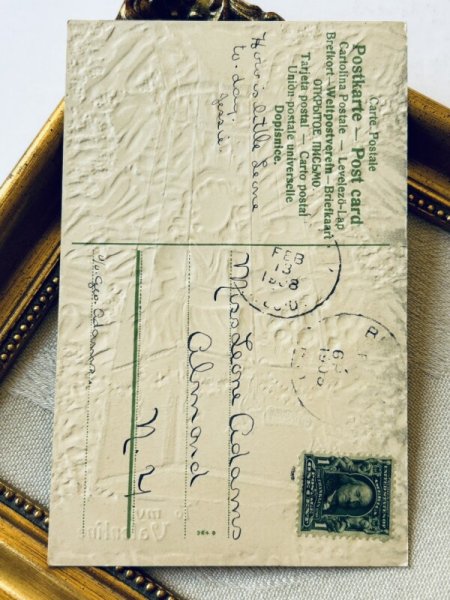 Carte Postale
Postkarte — Post card
Cartolina Postale — Levelező-Lap
Brefkort—Weltpostverein—Briefkaart
ОТКРЫТОЕ ПИСЬМО
Tarjeta postal — Carto postal
Union postale universelle
Dopisnice.
How is little Leone
to-day.
Jessie.
FEB
13
Miss Leone Adams
Almond
N. Y
1
1
to my
Valentine